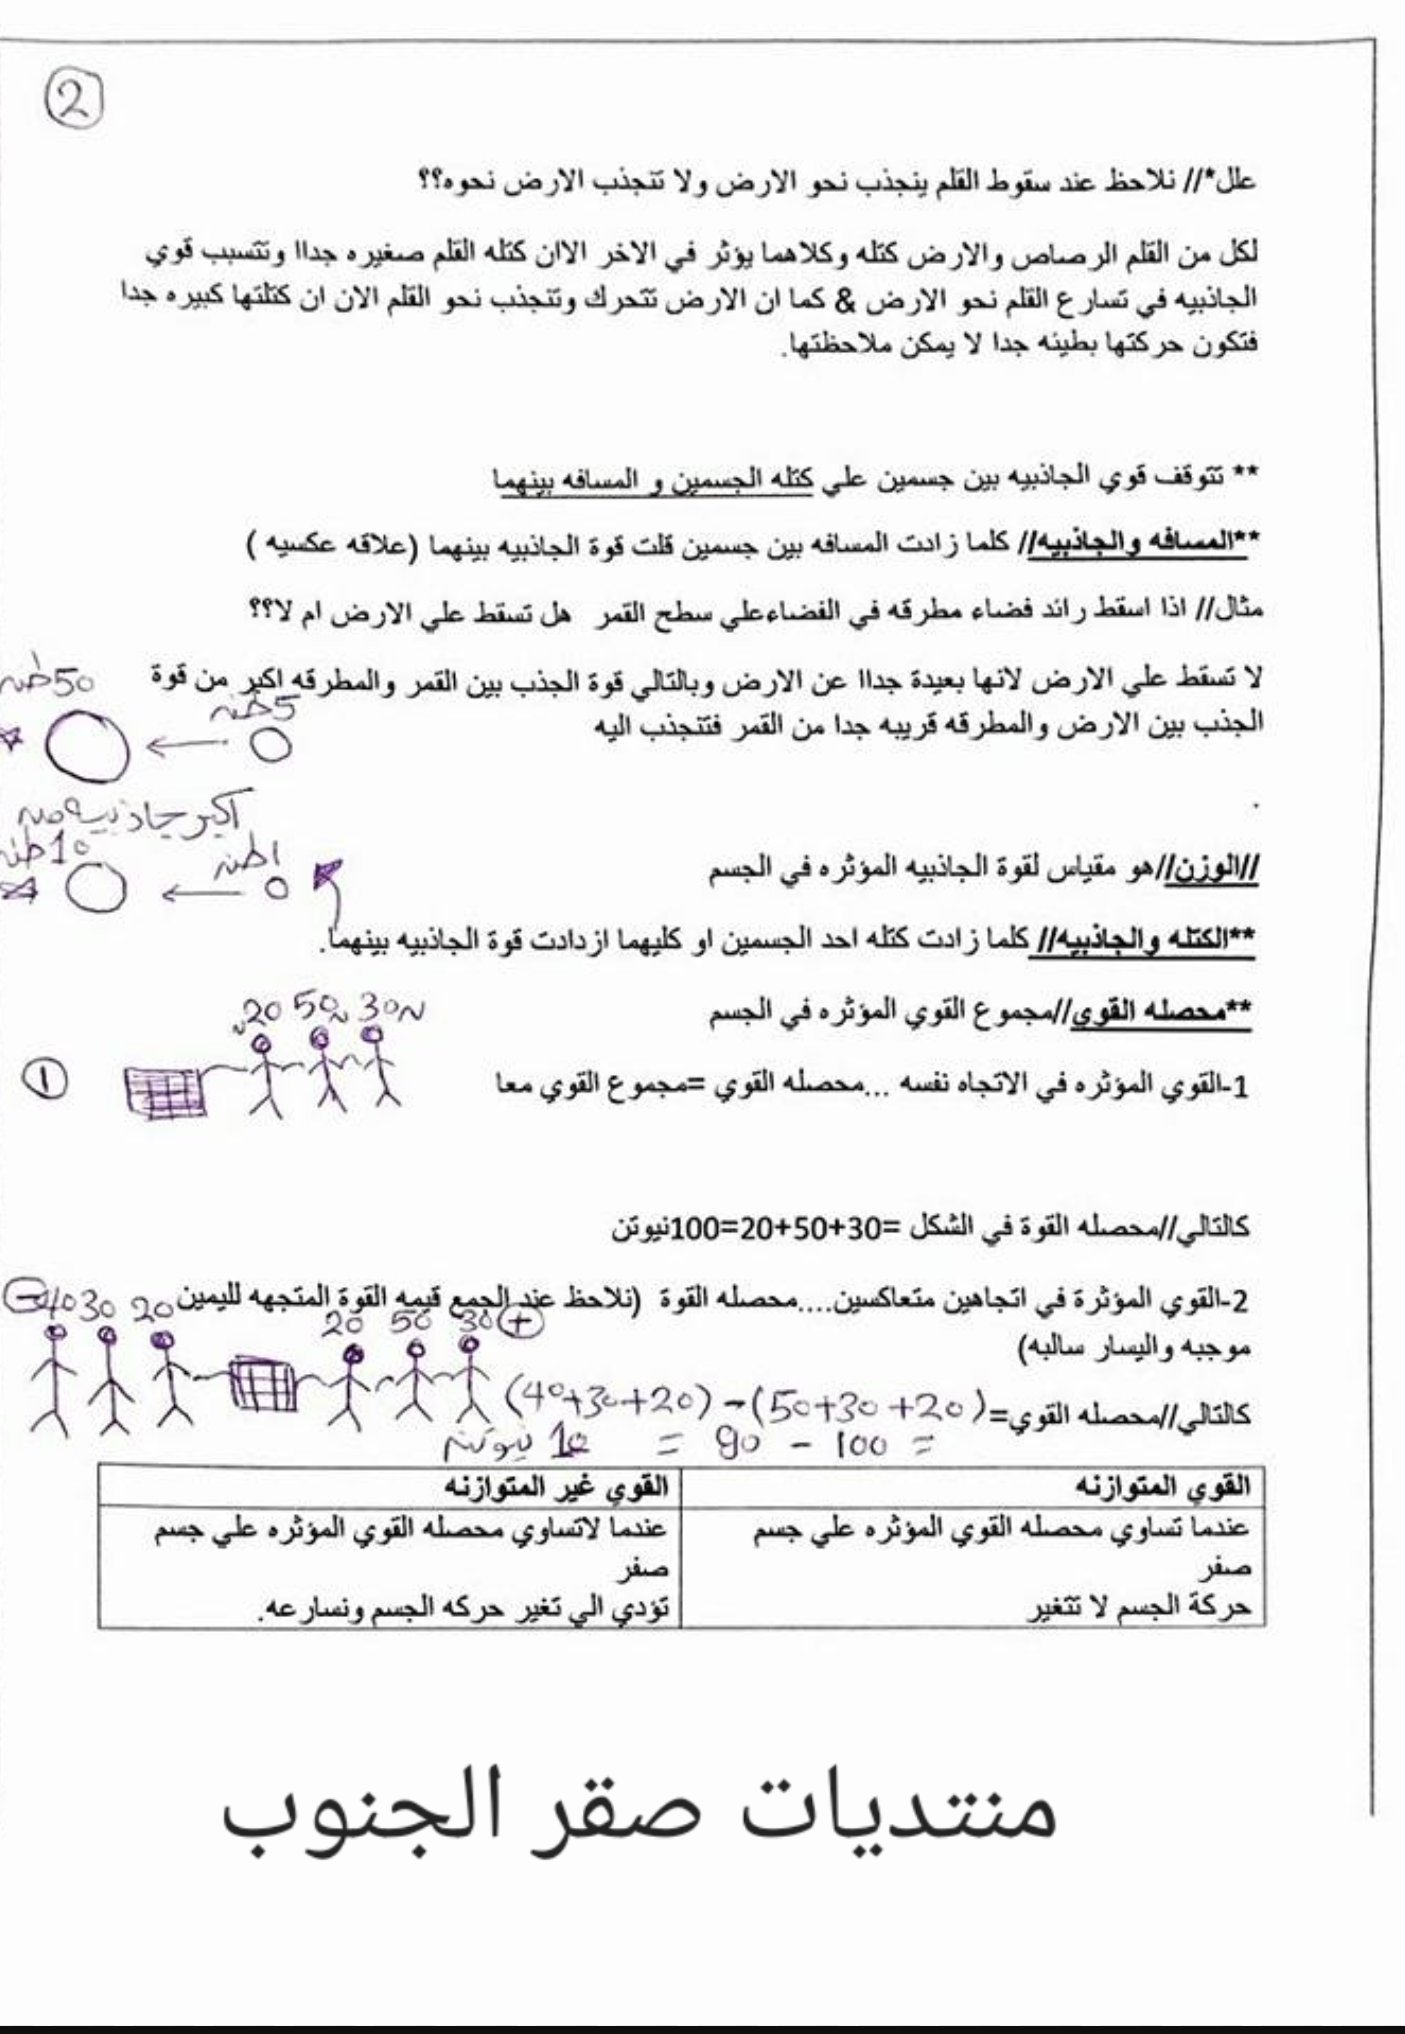 2
علل*// نلاحظ عند سقوط القلم ينجذب نحو الارض ولا تتجذب الارض نحوه؟؟
لكل من القلم الرصاص والارض كتله وكلاهما يؤثر في الاخر الاان كتله القلم صغيره جداا وتتسبب قوي
الجاذبيه في تسارع القلم نحو الارض & كما ان الارض تتحرك وتتجذب نحو القلم الان ان كتلتها كبيره جدا
فتكون حركتها بطيئه جدا لا يمكن ملاحظتها.
** تتوقف قوي الجاذبيه بين جسمين علي كتله الجسمين و المسافه بينهما
**المسافه والجاذبيه// كلما زادت المسافه بين جسمين قلت قوة الجاذبيه بينهما (علاقه عكسيه )
مثال// اذا اسقط رائد فضاء مطرقه في الفضاءعلي سطح القمر هل تسقط علي الارض ام لا؟؟
لا تسقط علي الارض لانها بعيدة جداا عن الارض وبالتالي قوة الجذب بين القمر والمطرقه اكبر من قوة
الجذب بين الارض والمطرقه قريبه جدا من القمر فتتجذب اليه
50طن
5طن
اكبر جاذبيه من
10طن
1طن
.
//الوزن//هو مقياس لقوة الجاذبيه المؤثره في الجسم
**الكتله والجاذبيه// كلما زادت كتله احد الجسمين او كليهما ازدادت قوة الجاذبيه بينهما.
**محصله القوي//مجموع القوي المؤثره في الجسم
20 50ن 30ن
1
1-القوي المؤثره في الاتجاه نفسه ...محصله القوي =مجموع القوي معا
كالتالي//محصله القوة في الشكل =30+50+20=100نيوتن
2-القوي المؤثرة في اتجاهين متعاكسين....محصله القوة (نلاحظ عند الجمع قيمه القوة المتجهه لليمين
موجبه واليسار سالبه)
- 40 30 20
20 50 30 +
كالتالي//محصله القوي=(50+30+20)-(40+30+20)
= 100 - 90 = 10 نيوتن
القوي المتوازنه
القوي غير المتوازنه
عندما تساوي محصله القوي المؤثره علي جسم
صفر
حركة الجسم لا تتغير
عندما لاتساوي محصله القوي المؤثره علي جسم
صفر
تؤدي الي تغير حركه الجسم ونسارعه.
منتديات صقر الجنوب